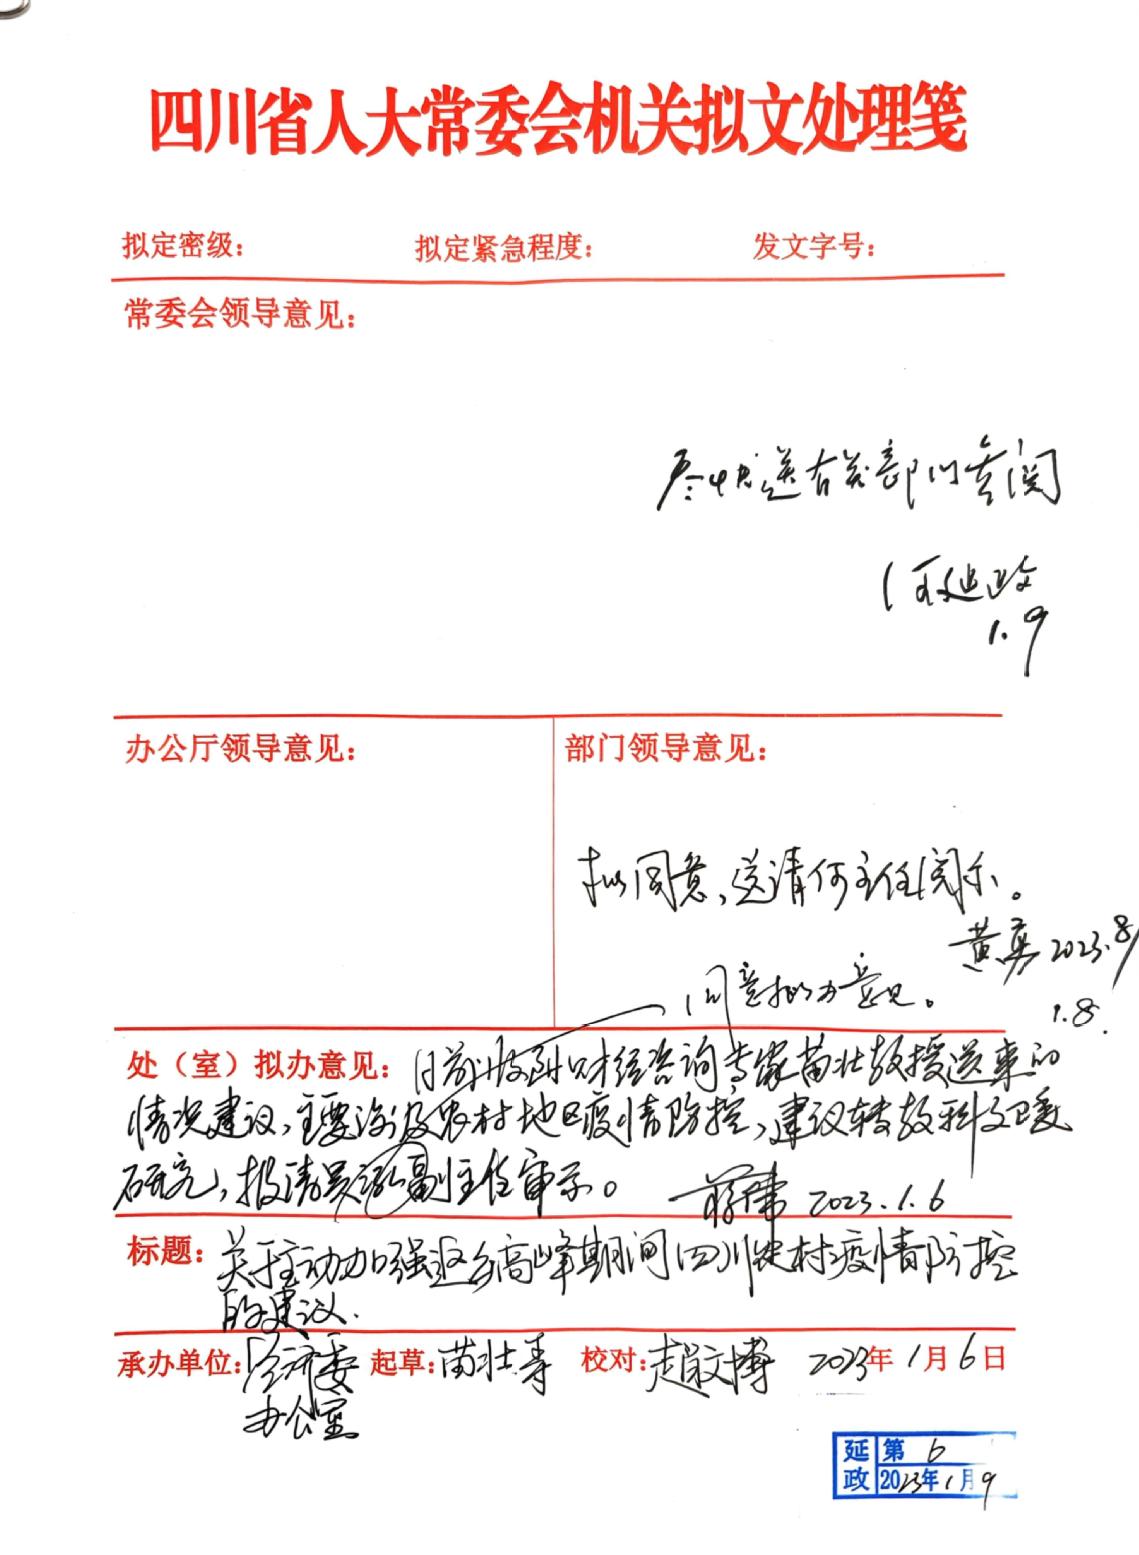 四川省人大常委会机关拟文处理笺
拟定密级： 拟定紧急程度： 发文字号：
常委会领导意见：
尽快送有关部门参阅
何延政
1.9
办公厅领导意见： 部门领导意见：
拟同意，送请何主任阅示。
黄勇 2023.8/1
同意拟办意见。
1.8.
处（室）拟办意见：日前收到财经咨询专家苗壮教授送来的
情况建议，主要涉及农村地区疫情防控，建议转教科文卫委
研究，报请吴泓副主任审示。 蒋伟 2023.1.6
标题：关于主动加强返乡高峰期间四川农村疫情防控
的建议.
承办单位：经济委 起草：苗壮 校对：赵文博 2023年1月6日
办公室
延政 第6
2023年1月9